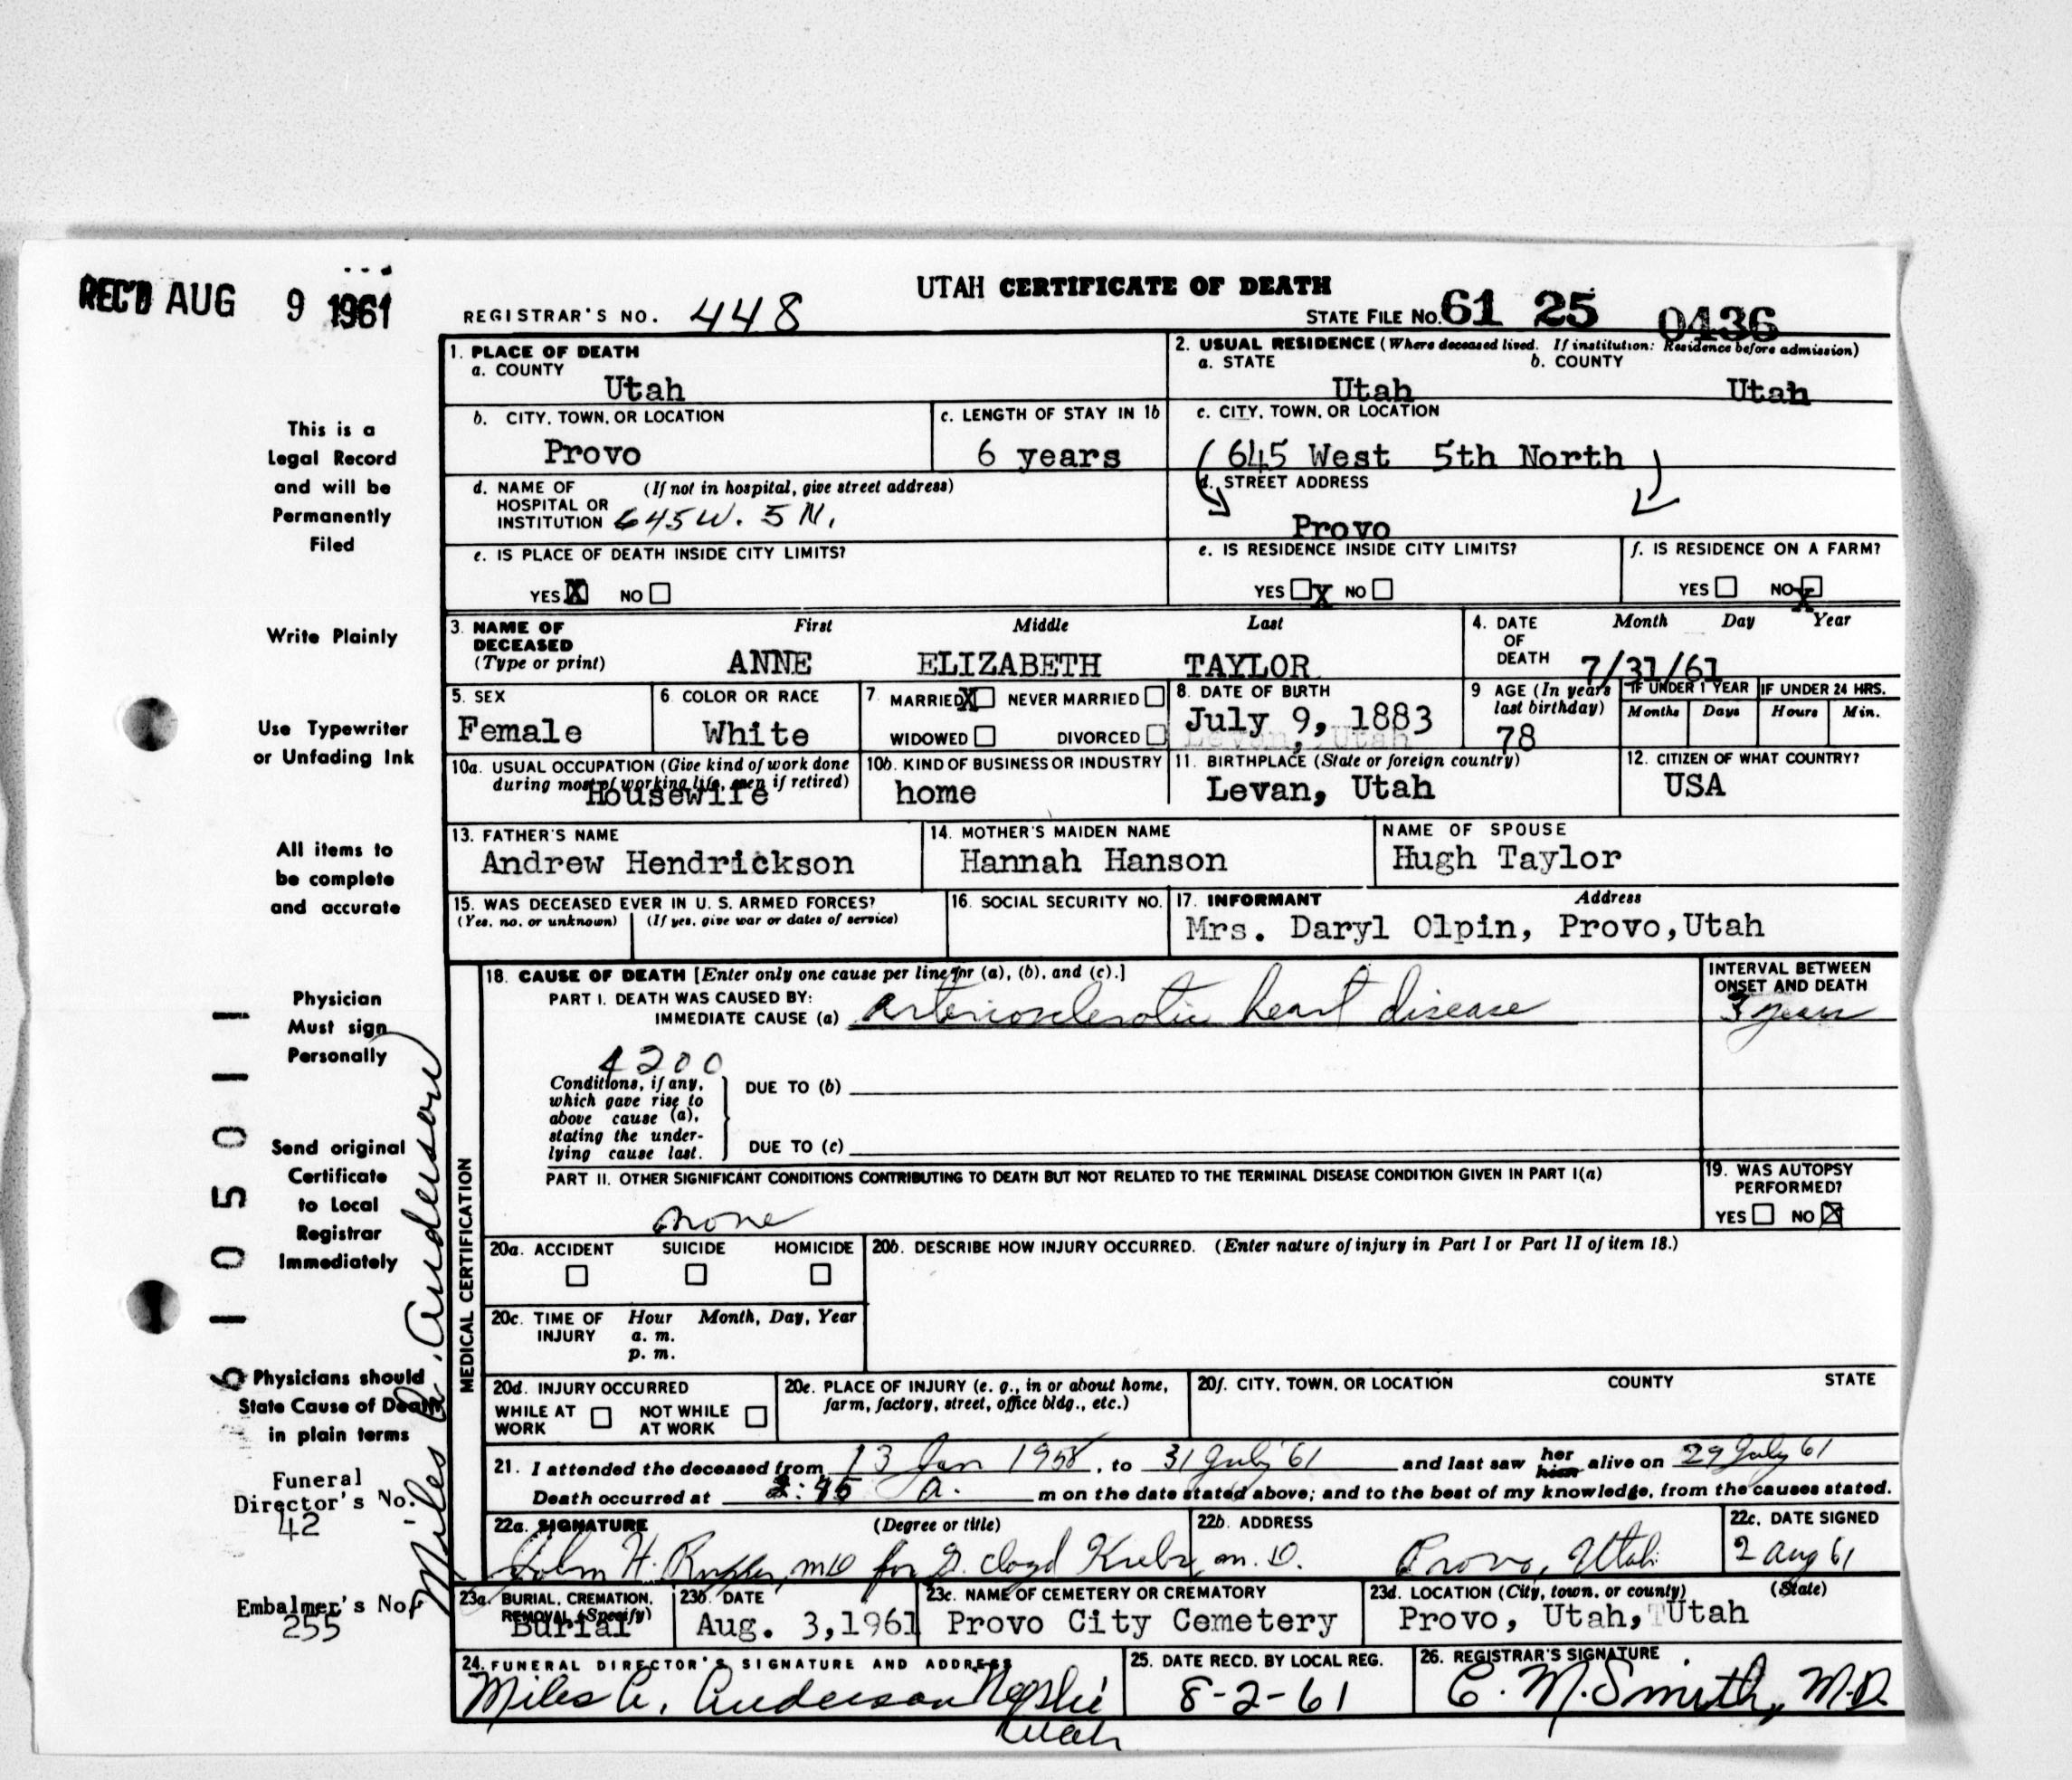 REC'D AUG 9 1961
UTAH CERTIFICATE OF DEATH
REGISTRAR'S NO. 448
STATE FILE NO. 61 25 0436
1. PLACE OF DEATH
a. COUNTY
Utah
2. USUAL RESIDENCE (Where deceased lived. If institution: Residence before admission)
a. STATE b. COUNTY
Utah Utah
b. CITY, TOWN, OR LOCATION
Provo
c. LENGTH OF STAY IN 1b
6 years
c. CITY, TOWN, OR LOCATION
(645 West 5th North)
d. NAME OF (If not in hospital, give street address)
HOSPITAL OR
INSTITUTION 645 W. 5 N.
d. STREET ADDRESS
Provo
e. IS PLACE OF DEATH INSIDE CITY LIMITS?
YES X NO
e. IS RESIDENCE INSIDE CITY LIMITS?
YES X NO
f. IS RESIDENCE ON A FARM?
YES NO X
3. NAME OF DECEASED (Type or print)
First Middle Last
ANNE ELIZABETH TAYLOR
4. DATE OF DEATH Month Day Year
7/31/61
5. SEX
Female
6. COLOR OR RACE
White
7. MARRIED X NEVER MARRIED
WIDOWED DIVORCED
8. DATE OF BIRTH
July 9, 1883
Levan, Utah
9 AGE (In years last birthday)
78
IF UNDER 1 YEAR IF UNDER 24 HRS.
Months Days Hours Min.
10a. USUAL OCCUPATION (Give kind of work done
during most of working life, even if retired)
Housewife
10b. KIND OF BUSINESS OR INDUSTRY
home
11. BIRTHPLACE (State or foreign country)
Levan, Utah
12. CITIZEN OF WHAT COUNTRY?
USA
13. FATHER'S NAME
Andrew Hendrickson
14. MOTHER'S MAIDEN NAME
Hannah Hanson
NAME OF SPOUSE
Hugh Taylor
15. WAS DECEASED EVER IN U. S. ARMED FORCES?
(Yes, no, or unknown) (If yes, give war or dates of service)
16. SOCIAL SECURITY NO.
17. INFORMANT Address
Mrs. Daryl Olpin, Provo,Utah
MEDICAL CERTIFICATION
18. CAUSE OF DEATH [Enter only one cause per line for (a), (b), and (c).]
PART I. DEATH WAS CAUSED BY:
IMMEDIATE CAUSE (a) arteriosclerotic heart disease
INTERVAL BETWEEN
ONSET AND DEATH
3 years
4200
Conditions, if any,
which gave rise to
above cause (a),
stating the under-
lying cause last.
DUE TO (b)
DUE TO (c)
PART II. OTHER SIGNIFICANT CONDITIONS CONTRIBUTING TO DEATH BUT NOT RELATED TO THE TERMINAL DISEASE CONDITION GIVEN IN PART I(a)
none
19. WAS AUTOPSY
PERFORMED?
YES NO X
20a. ACCIDENT SUICIDE HOMICIDE
20b. DESCRIBE HOW INJURY OCCURRED. (Enter nature of injury in Part I or Part II of item 18.)
20c. TIME OF INJURY Hour Month, Day, Year
a. m.
p. m.
20d. INJURY OCCURRED
WHILE AT WORK NOT WHILE AT WORK
20e. PLACE OF INJURY (e. g., in or about home,
farm, factory, street, office bldg., etc.)
20f. CITY, TOWN, OR LOCATION COUNTY STATE
21. I attended the deceased from 13 Jan 1958, to 31 July 61 and last saw her him alive on 29 July 61
Death occurred at :45 a. m on the date stated above; and to the best of my knowledge, from the causes stated.
22a. SIGNATURE (Degree or title)
John H. MD for G. Cloyd Krebs, M. D.
22b. ADDRESS
Provo, Utah
22c. DATE SIGNED
2 Aug 61
23a. BURIAL, CREMATION,
REMOVAL (Specify)
Burial
23b. DATE
Aug. 3,1961
23c. NAME OF CEMETERY OR CREMATORY
Provo City Cemetery
23d. LOCATION (City, town, or county) (State)
Provo, Utah, Utah
24. FUNERAL DIRECTOR'S SIGNATURE AND ADDRESS
Miles A. Anderson Nephi
Utah
25. DATE RECD. BY LOCAL REG.
8-2-61
26. REGISTRAR'S SIGNATURE
C. M. Smith, M.D.
This is a
Legal Record
and will be
Permanently
Filed
Write Plainly
Use Typewriter
or Unfading Ink
All items to
be complete
and accurate
Physician
Must sign
Personally
Send original
Certificate
to Local
Registrar
Immediately
Physicians should
State Cause of Death
in plain terms
Funeral
Director's No.
42
Embalmer's No.
255
Miles A. Anderson